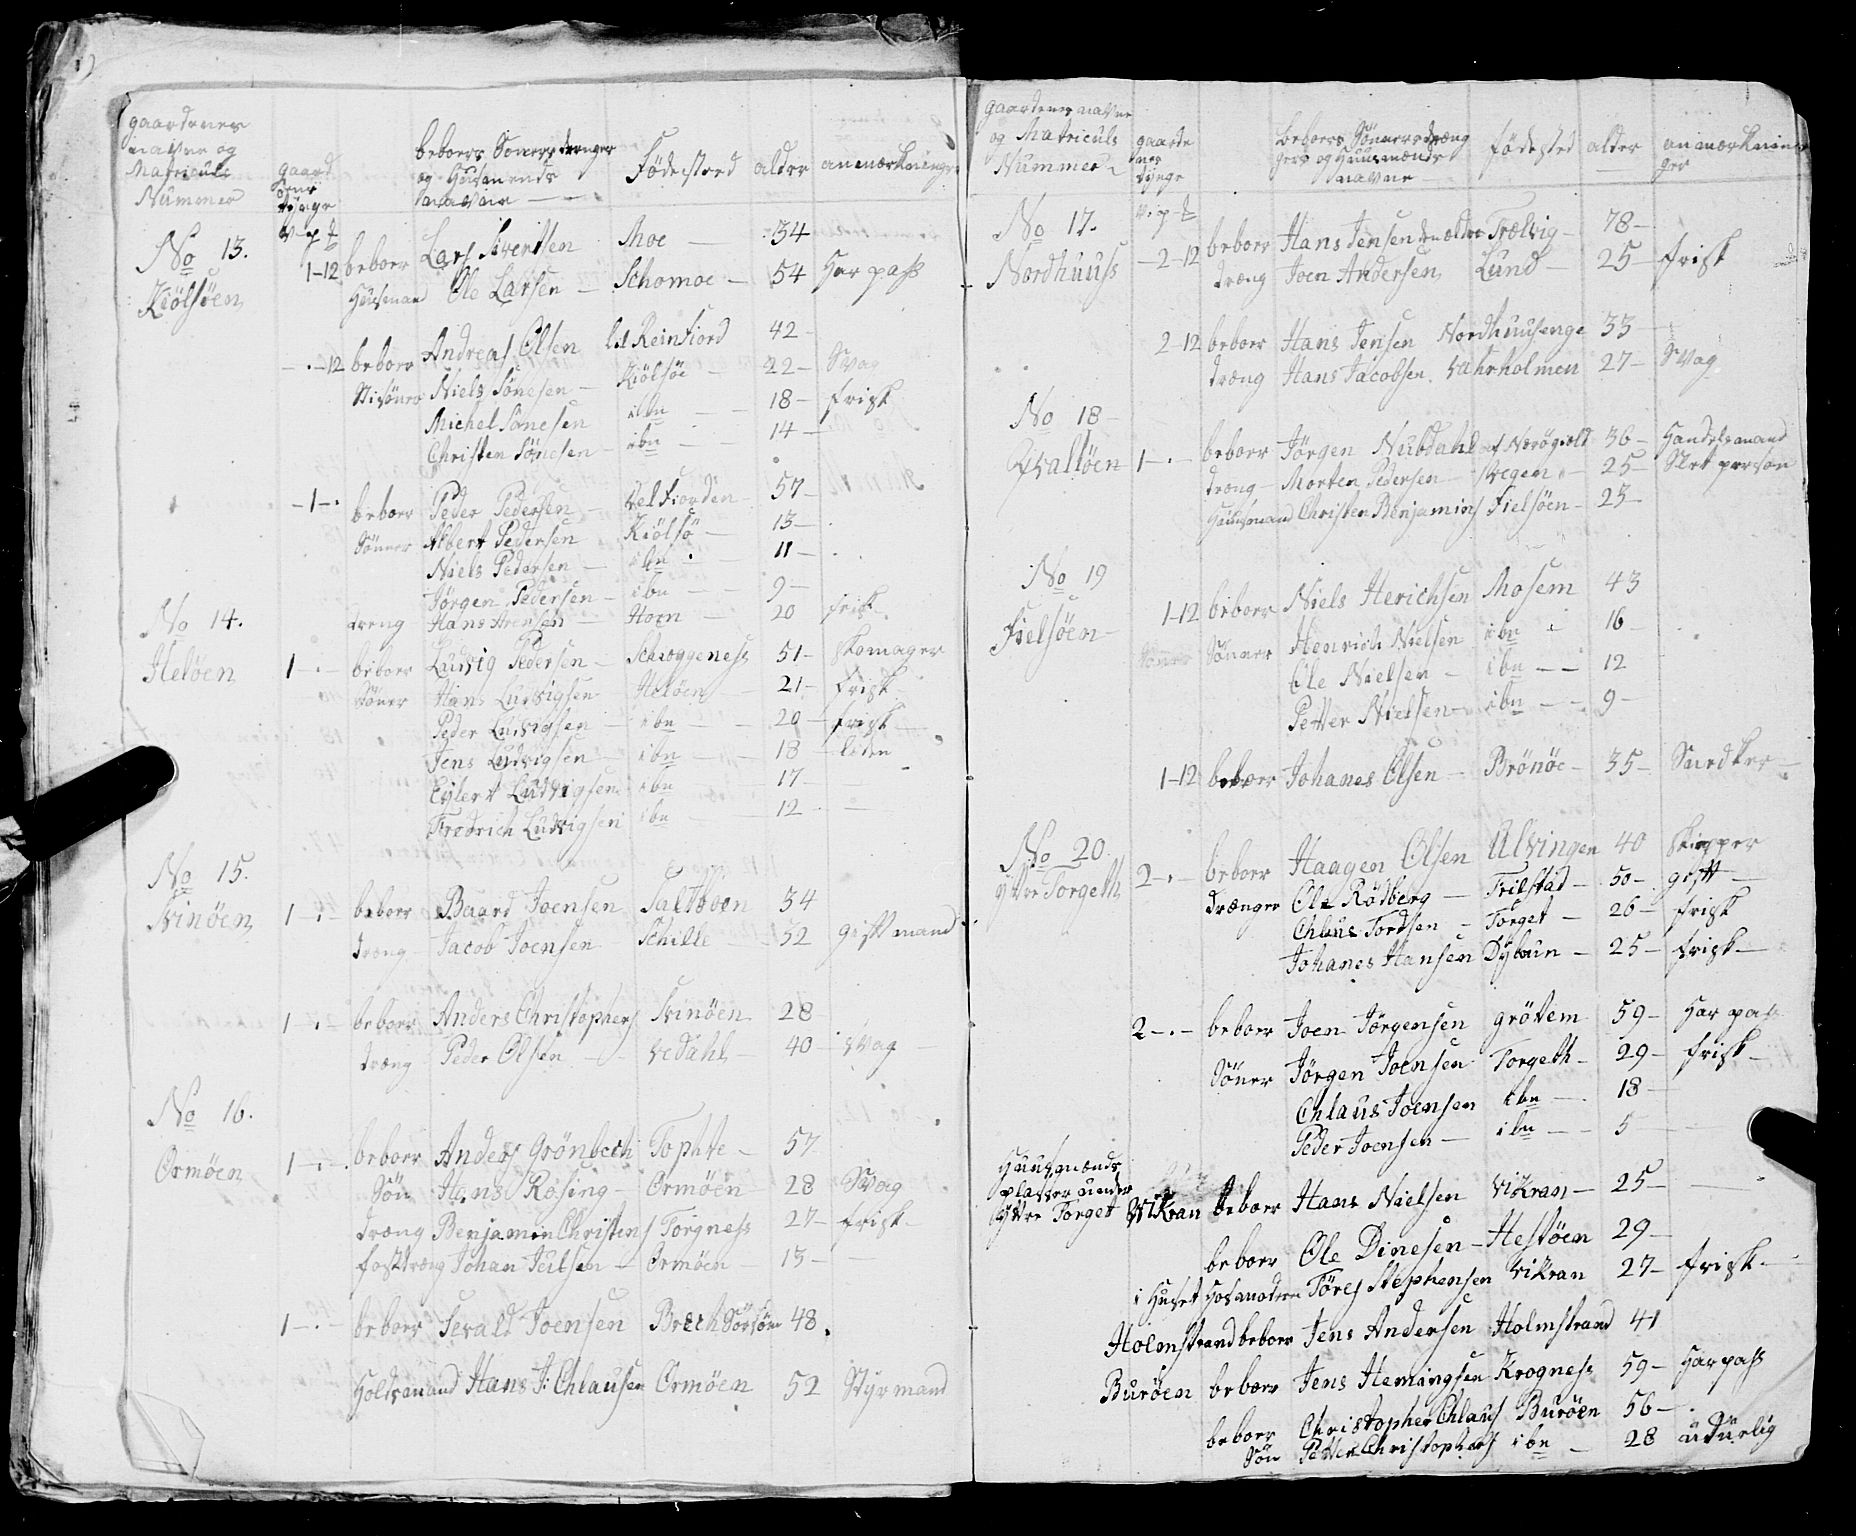 gaardenes
navne og
Matriculs
Nummer
gaard
enes
tynge
V - p - #
beboers Sönners drenger
og Husmends
navne
Födested
alder
anmærkninger
No 13.
Kiölsöen
1-12 beboer Lars Sivertsen Moe 34
Huusmand Ole Larsen - Schomoe - 54 Har pass
- . -12 beboer Andreas Olsen Reinfiord 42
Stisöner Niels Sönesen - Kiölsöe - 22 - Svag
Michel Sönesen ibn - 18 - frisk
Christen Sönesen - ibn - 14 -
- 1 - . beboer Peder Pedersen - Velfiorden - 57 -
Sönner Albert Pedersen Kiölsö - 13 -
Niels Pedersen - ibn - 11 -
Jörgen Pedersen - ibn - 9 -
dreng Hans Arensen Hoen - 20 frisk
No 14.
Helöen
1 - . - beboer Ludvig Pedersen - Schroggeness 51 - skomager
Söner Hans Ludvigsen Helöen - 21 - frisk
Peder Ludvigsen - ibn - 20 - frisk -
Jens Ludvigsen - ibn - 18 - liden
Eylert Ludvigsen ibn - 17 -
Fredrich Ludvigsen ibn - 12 -
No 15.
Svinöen
1 - . - beboer Baard Joensen Saltboen 34
dræng - Jacob Joensen Schille 32 gift mand
1 - . - beboer Anders Christophers Svinöen 28
dræng Peder Olsen - Vedahl - 40 - svag -
No 16.
Ormöen
1 - . - beboer Anders Grönbech Tophte - 57
Sön Hans Rosing - Ormöen 28 Svag
dræng Benjamin Christens Torgness 27 - frisk -
fostdræng Johan Jeilsen - Ormöen - 13 -
1 - . - beboer Sevald Joensen Brech Sörsöm 48.
Holdsmand Hans J: Chlausen Ormöen 52 Styrmand
gaardenes navne
og Matriculs
Nummer
gaarde
nes
tynge
V - p - #
beboers Sönners dræng
gers og Huusmænds
navne
födested
alder
anmærknin
ger
No 17.
Nordhuuss
- 2-12 beboer Hans Jensen den ældre Trælvig - 78 -
dræng Joen Andersen Lund - 25 - frisk
2-12 beboer Hans Jensen Nordhuusenge 33 -
dræng Hans Jacobsen Vahrholmen 27 - Svag
No 18 -
Qvalöen
1 - . - beboer Jörgen Nubdahl af Neröe 36 - Handelsmand
dræng - Morten Pedersen - Vegen - 25 - Slet person
Huusmand Christen Benjamins Fielsöen - 23 -
No 19
Fielsöen -
1-12 beboer Niels Herichsen Mosem 43
Sönner Henrich Nielsen ibn - 16 -
Ole Nielsen - ibn - - 12
Petter Nielsen - ibn - - 9 -
1-12 beboer Johanes Olsen - Brönöe - 35 - Snedker -
No 20.
yttre Torgeth
2 - . - beboer Haagen Olsen Ulvingen 40 skipper
drænger Ole Rödberg - Frilstad - 50 - gift -
Chlaus Tordsen - Torget - 26 - frisk
Johanes Hansen Dybaun - 25 - frisk -
2 - . - beboer Joen Jörgensen Grötem 59 - Har pas
Söner Jörgen Joensen Torgeth - 29 - frisk -
Chlaus Joensen ibn - 18 -
Peder Joensen - ibn - - 5 -
Huusmænds
pladser under
yttre Torget Vikran beboer Hans Nielsen Vikran - 25 -
beboer Ole Dinesen - Hestöen 29 -
i Huset Hos moderen Töres Stephensen Vikran 27 - frisk -
Holmstrand beboer Jens Andersen Holmstrand 41
Buröen beboer Jens Hemingsen Krogness 59 - Har pass
beboer Christopher Chlaus Buröen 56 -
Sön Petter Christophers ibn - 28 udürlig